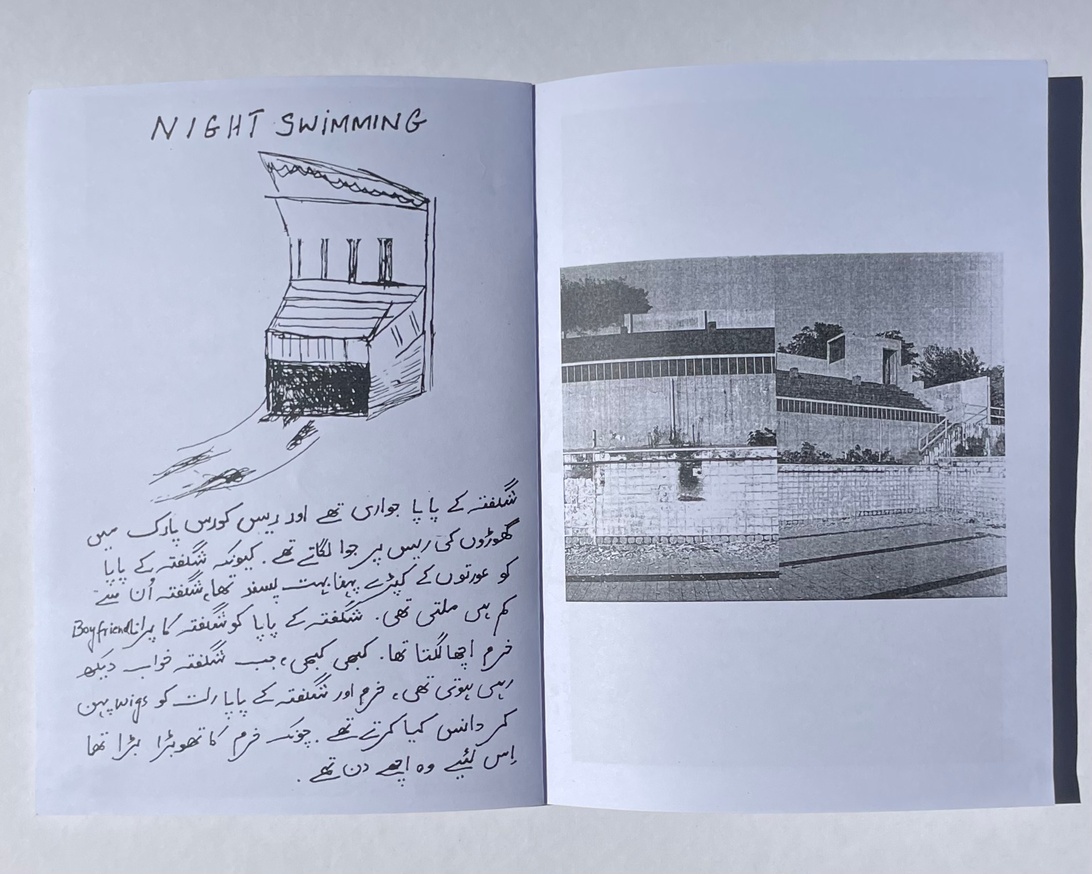 NIGHT SWIMMING
شگفتہ کے پاپا جواری تھے اور ریس کورس پارک میں
گھوڑوں کی ریس پر جوا لگاتے تھے۔ کیونکہ شگفتہ کے پاپا
کو عورتوں کے کپڑے پہننا بہت پسند تھا، شگفتہ اُن سے
کم ہی ملتی تھی۔ شگفتہ کے پاپا کو شگفتہ کا پرانا Boyfriend
خرم اچھا لگتا تھا۔ کبھی کبھی، جب شگفتہ خواب دیکھ
رہی ہوتی تھی، خرم اور شگفتہ کے پاپا رات کو wigs پہن
کر ڈانس کیا کرتے تھے۔ چونکہ خرم کا تھوبڑا بڑا تھا
اِس لئیے وہ اچھے دن تھے۔